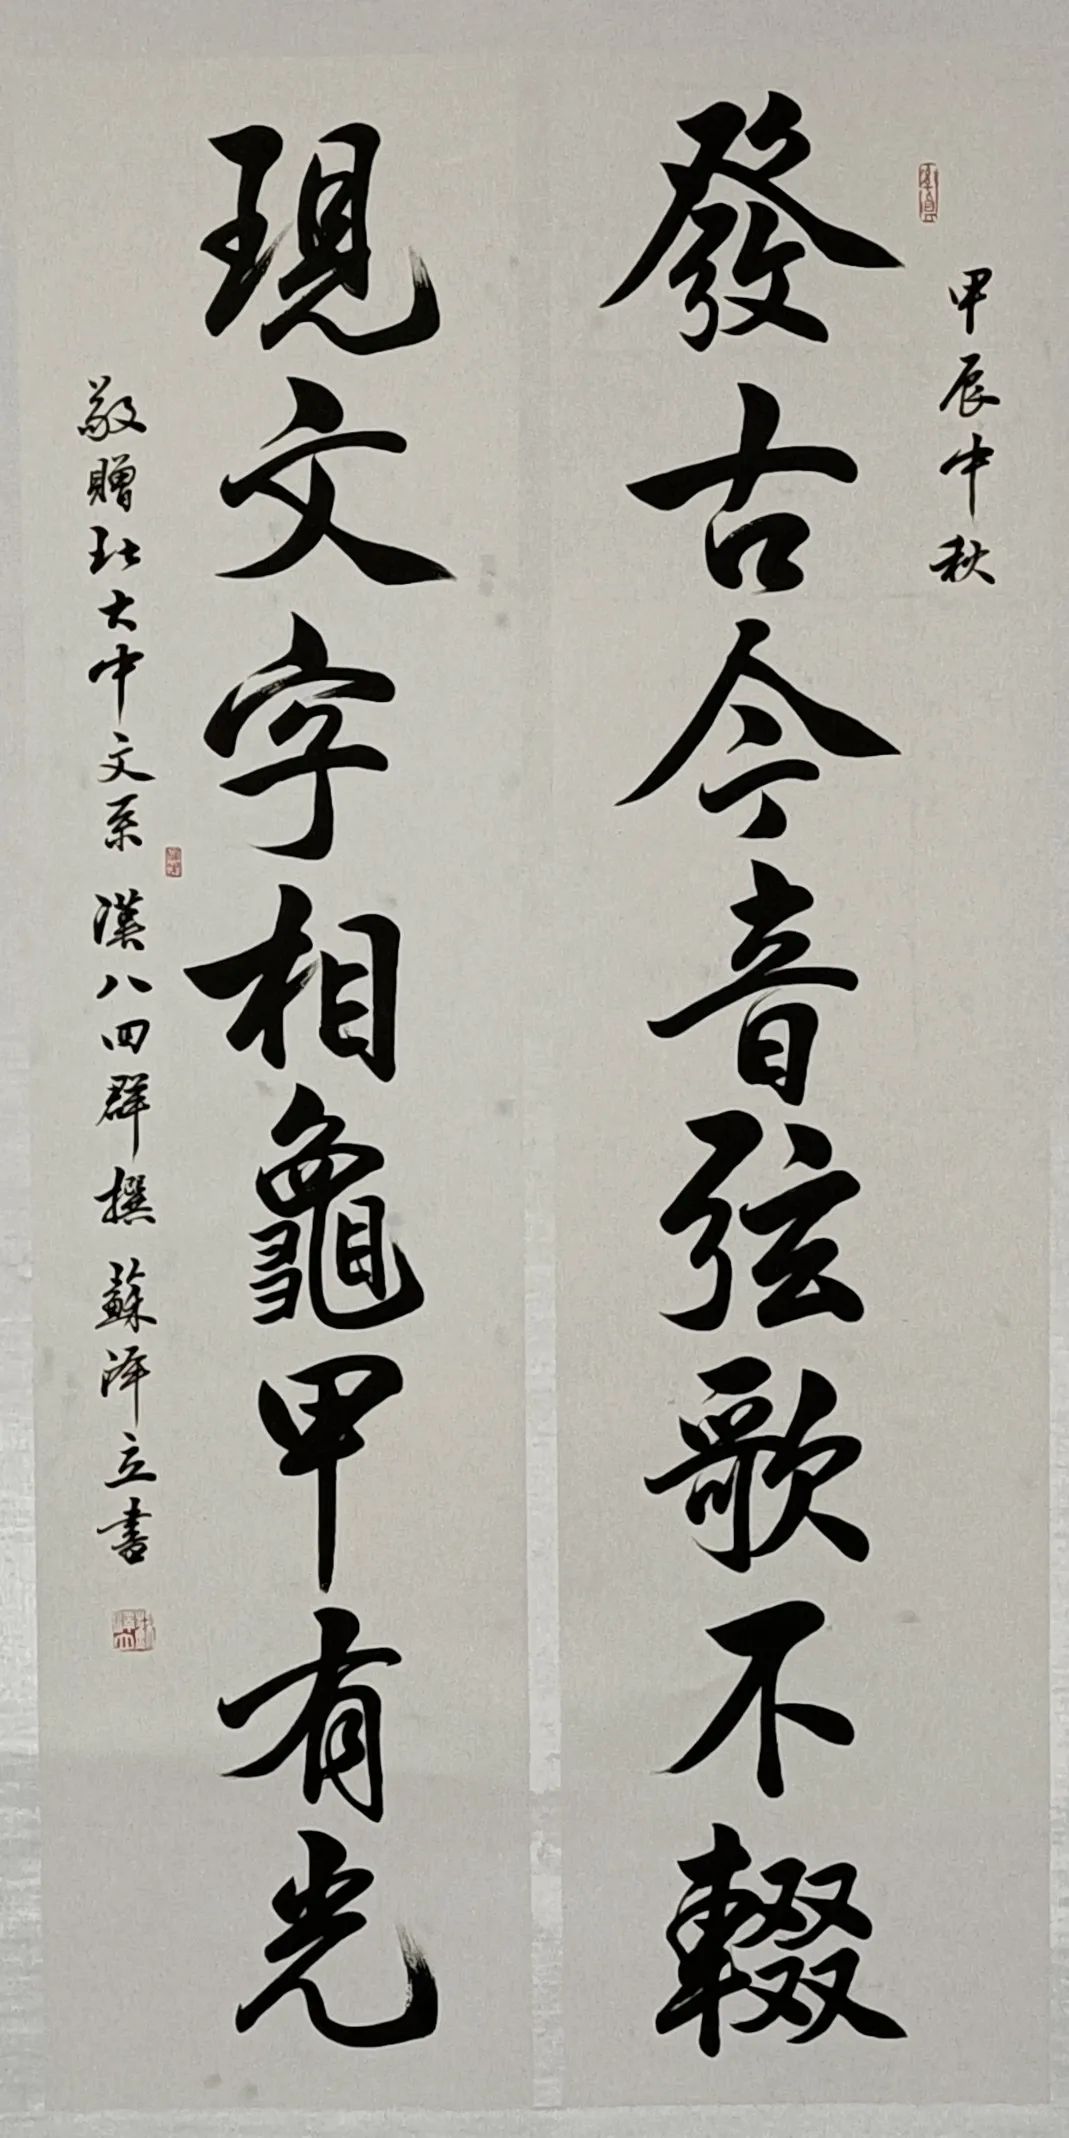 甲辰中秋
發古今音弦歌不輟
現文字相龜甲有光
敬贈北大中文系 漢八四群撰 蘇澤立書